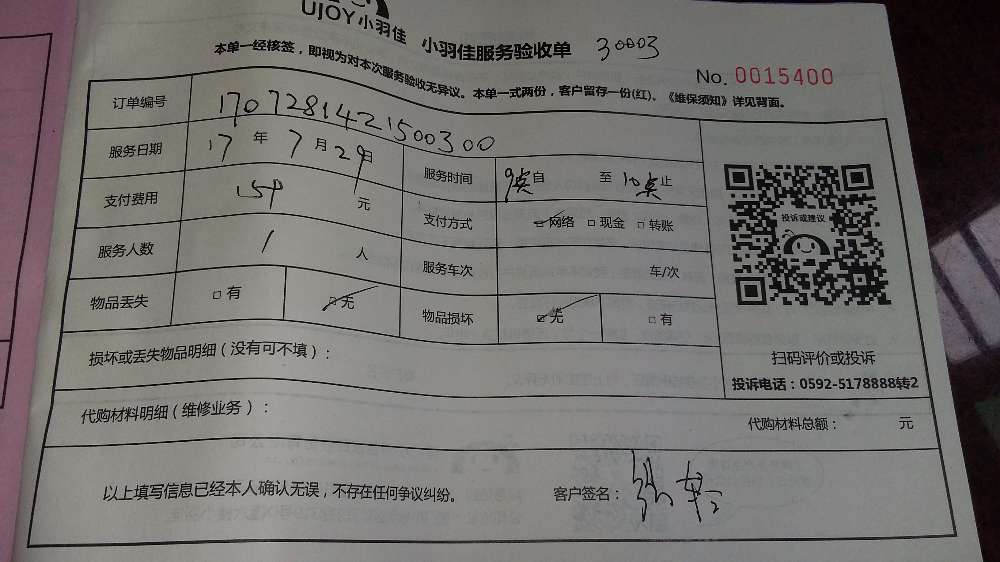 UJOY小羽佳 小羽佳服务验收单 30003
本单一经核签，即视为对本次服务验收无异议。本单一式两份，客户留存一份(红)。《维保须知》详见背面。
No. 0015400
订单编号 1707281421500300
服务日期 17 年 7 月 29 日 服务时间 9点 自 至 10点 止
支付费用 159 元 支付方式 □ 网络 □ 现金 □ 转账
服务人数 1 人 服务车次 车/次
物品丢失 □ 有 □ 无 物品损坏 □ 无 □ 有
投诉或建议
扫码评价或投诉
投诉电话：0592-5178888转2
损坏或丢失物品明细（没有可不填）：
代购材料明细（维修业务）： 代购材料总额： 元
以上填写信息已经本人确认无误，不存在任何争议纠纷。 客户签名：